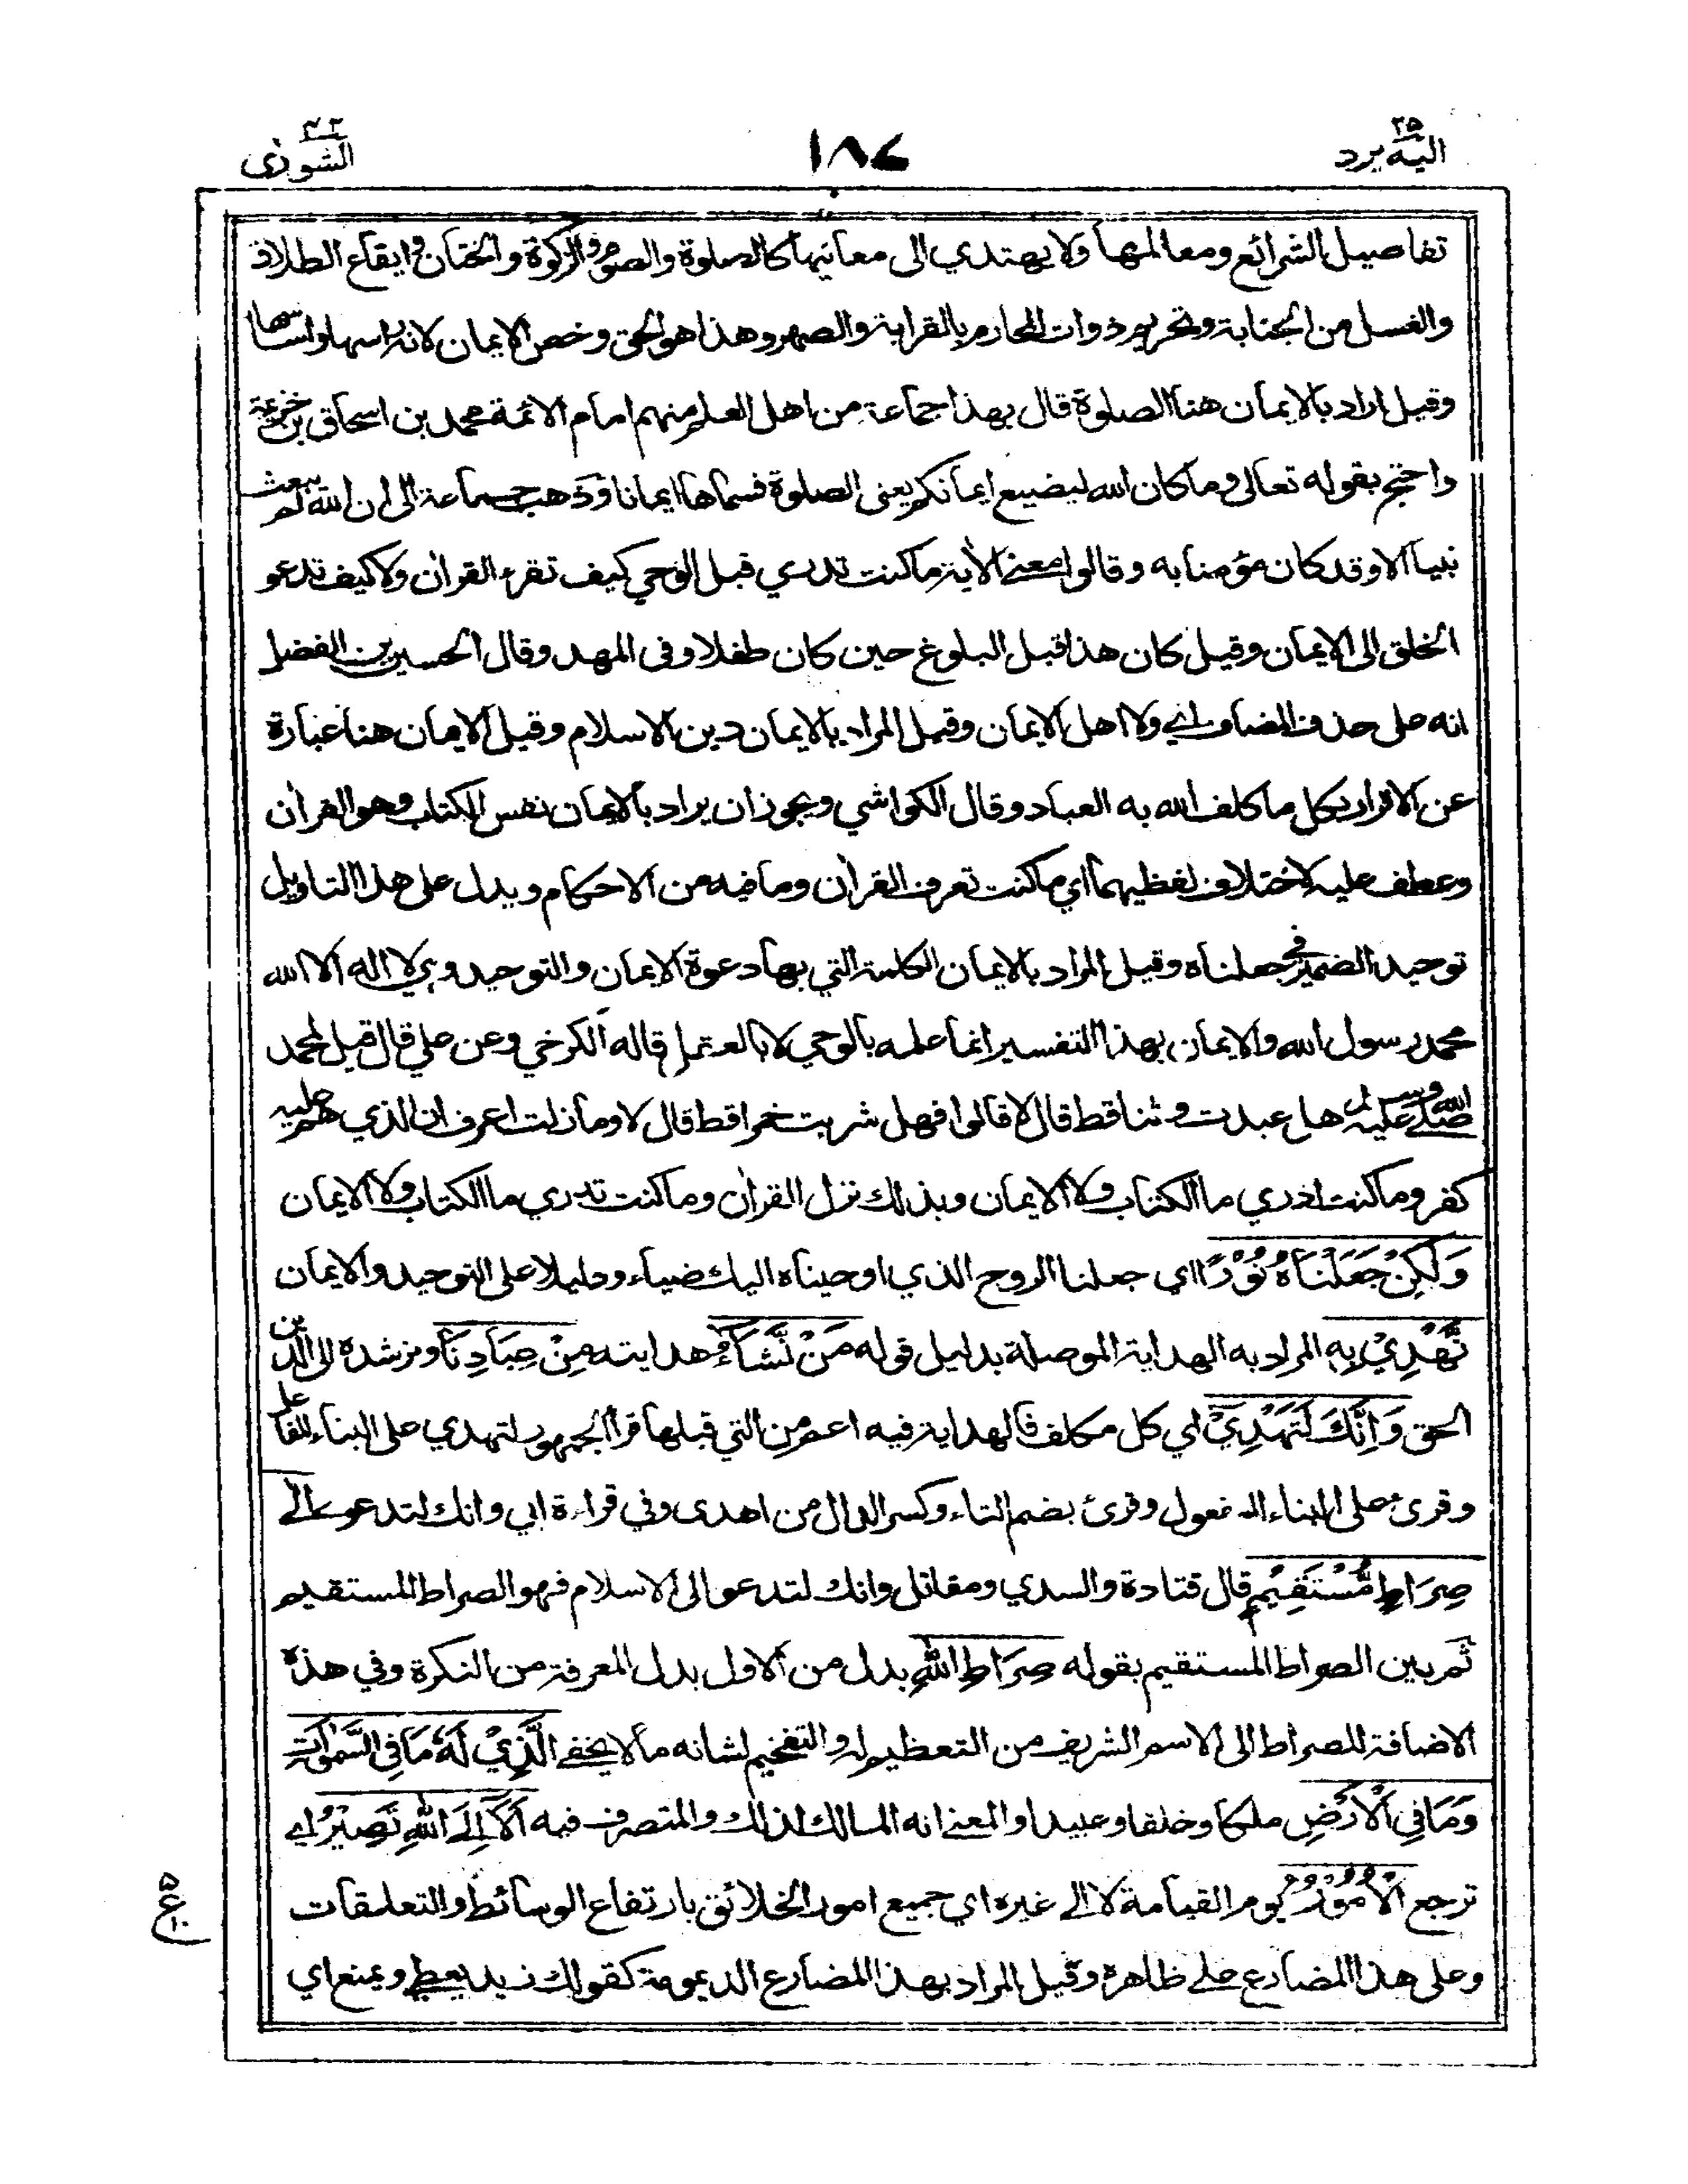 ٢٥
اليه يرد
١٨٧
٤٢
الشورى
تفاصيل الشرائع ومعالمها ولا يهتدي الى معانيها كالصلوة والصوم والزكوة والختان وايقاع الطلاق
والغسل من الجنابة وتحريم ذوات المحارم بالقرابة والصهر وهذا هو الحق وخص الايمان لانه راسها واساسها
وقيل اراد بالايمان هنا الصلوة قال بهذا جماعة من اهل العلم منهم امام الائمة محمد بن اسحاق بن خزيمة
واحتج بقوله تعالى وما كان الله ليضيع ايمانكم يعني الصلوة فسماها ايمانا وذهب جماعة الى ان الله لم يبعث
نبيا الا وقد كان مؤمنا به وقالوا معنى الاية ما كنت تدري قبل الوحي كيف تقرء القرأن ولا كيف تدعو
الخلق الى الايمان وقيل كان هذا قبل البلوغ حين كان طفلا وفي المهد وقال الحسين بن الفضل
انه على حذف المضاف اي ولا اهل الايمان وقيل المراد بالايمان دين الاسلام وقيل الايمان هنا عبارة
عن الاقرار بكل ما كلف الله به العباد وقال الكواشي ويجوز ان يراد بالايمان نفس الكتاب وهو القرأن
وعطف عليه لاختلاف لفظيهما اي ما كنت تعرف القرأن وما فيه من الاحكام ويدل على هذا التاويل
توحيد الضمير في جعلناه وقيل المراد بالايمان الكلمة التي بها دعوة الايمان والتوحيد وهي لا اله الا الله
محمد رسول الله والايمان بهذا التفسير انما علمه بالوحي لا بالعقل قاله الكرخي وعن علي قال قيل لمحمد
صلى الله عليه وسلم هل عبدت وثنا قط قال لا قالوا فهل شربت خمرا قط قال لا وما زلت اعرف ان الذي هم عليه
كفر وما كنت ادري ما الكتاب ولا الايمان وبذلك نزل القرأن وما كنت تدري ما الكتاب ولا الايمان
وَلٰكِنْ جَعَلْنَاهُ نُوْرًا اي جعلنا الروح الذي اوحيناه اليك ضياء ودليلا على التوحيد والايمان
نَّهْدِيْ بِهِ المراد به الهداية الموصلة بدليل قوله مَنْ نَّشَآءُ هدايته مِنْ عِبَادِنَا ونرشده الى الدين
الحق وَاِنَّكَ لَتَهْدِيْ اي كل مكلف فالهداية فيه اعم من التي قبلها قرأ الجمهور لتهدي على البناء للفاعل
وقرئ على البناء للمفعول وقرئ بضم التاء وكسر الدال من اهدى وفي قراءة ابي وانك لتدعو اِلٰى
صِرَاطٍ مُّسْتَقِيْمٍ قال قتادة والسدي ومقاتل وانك لتدعو الى الاسلام فهو الصراط المستقيم
ثم بين الصراط المستقيم بقوله صِرَاطِ اللّٰهِ بدل من الاول بدل المعرفة من النكرة وفي هذه
الاضافة للصراط الى الاسم الشريف من التعظيم له والتفخيم لشانه ما لا يخفى الَّذِيْ لَهٗ مَا فِي السَّمٰوٰتِ
وَمَا فِي الْاَرْضِ ملكا وخلقا وعبيدا والمعنى انه المالك لذلك والمتصرف فيه اَلَآ اِلَى اللّٰهِ تَصِيْرُ اي
ترجع الْاُمُوْرُ يوم القيامة لا الى غيره اي جميع امور الخلائق بارتفاع الوسائط والتعلقات
وعلى هذا المضارع على ظاهره وقيل المراد بهذا المضارع الديمومة كقولك زيد يعطي ويمنع اي
٥
ع
١٠